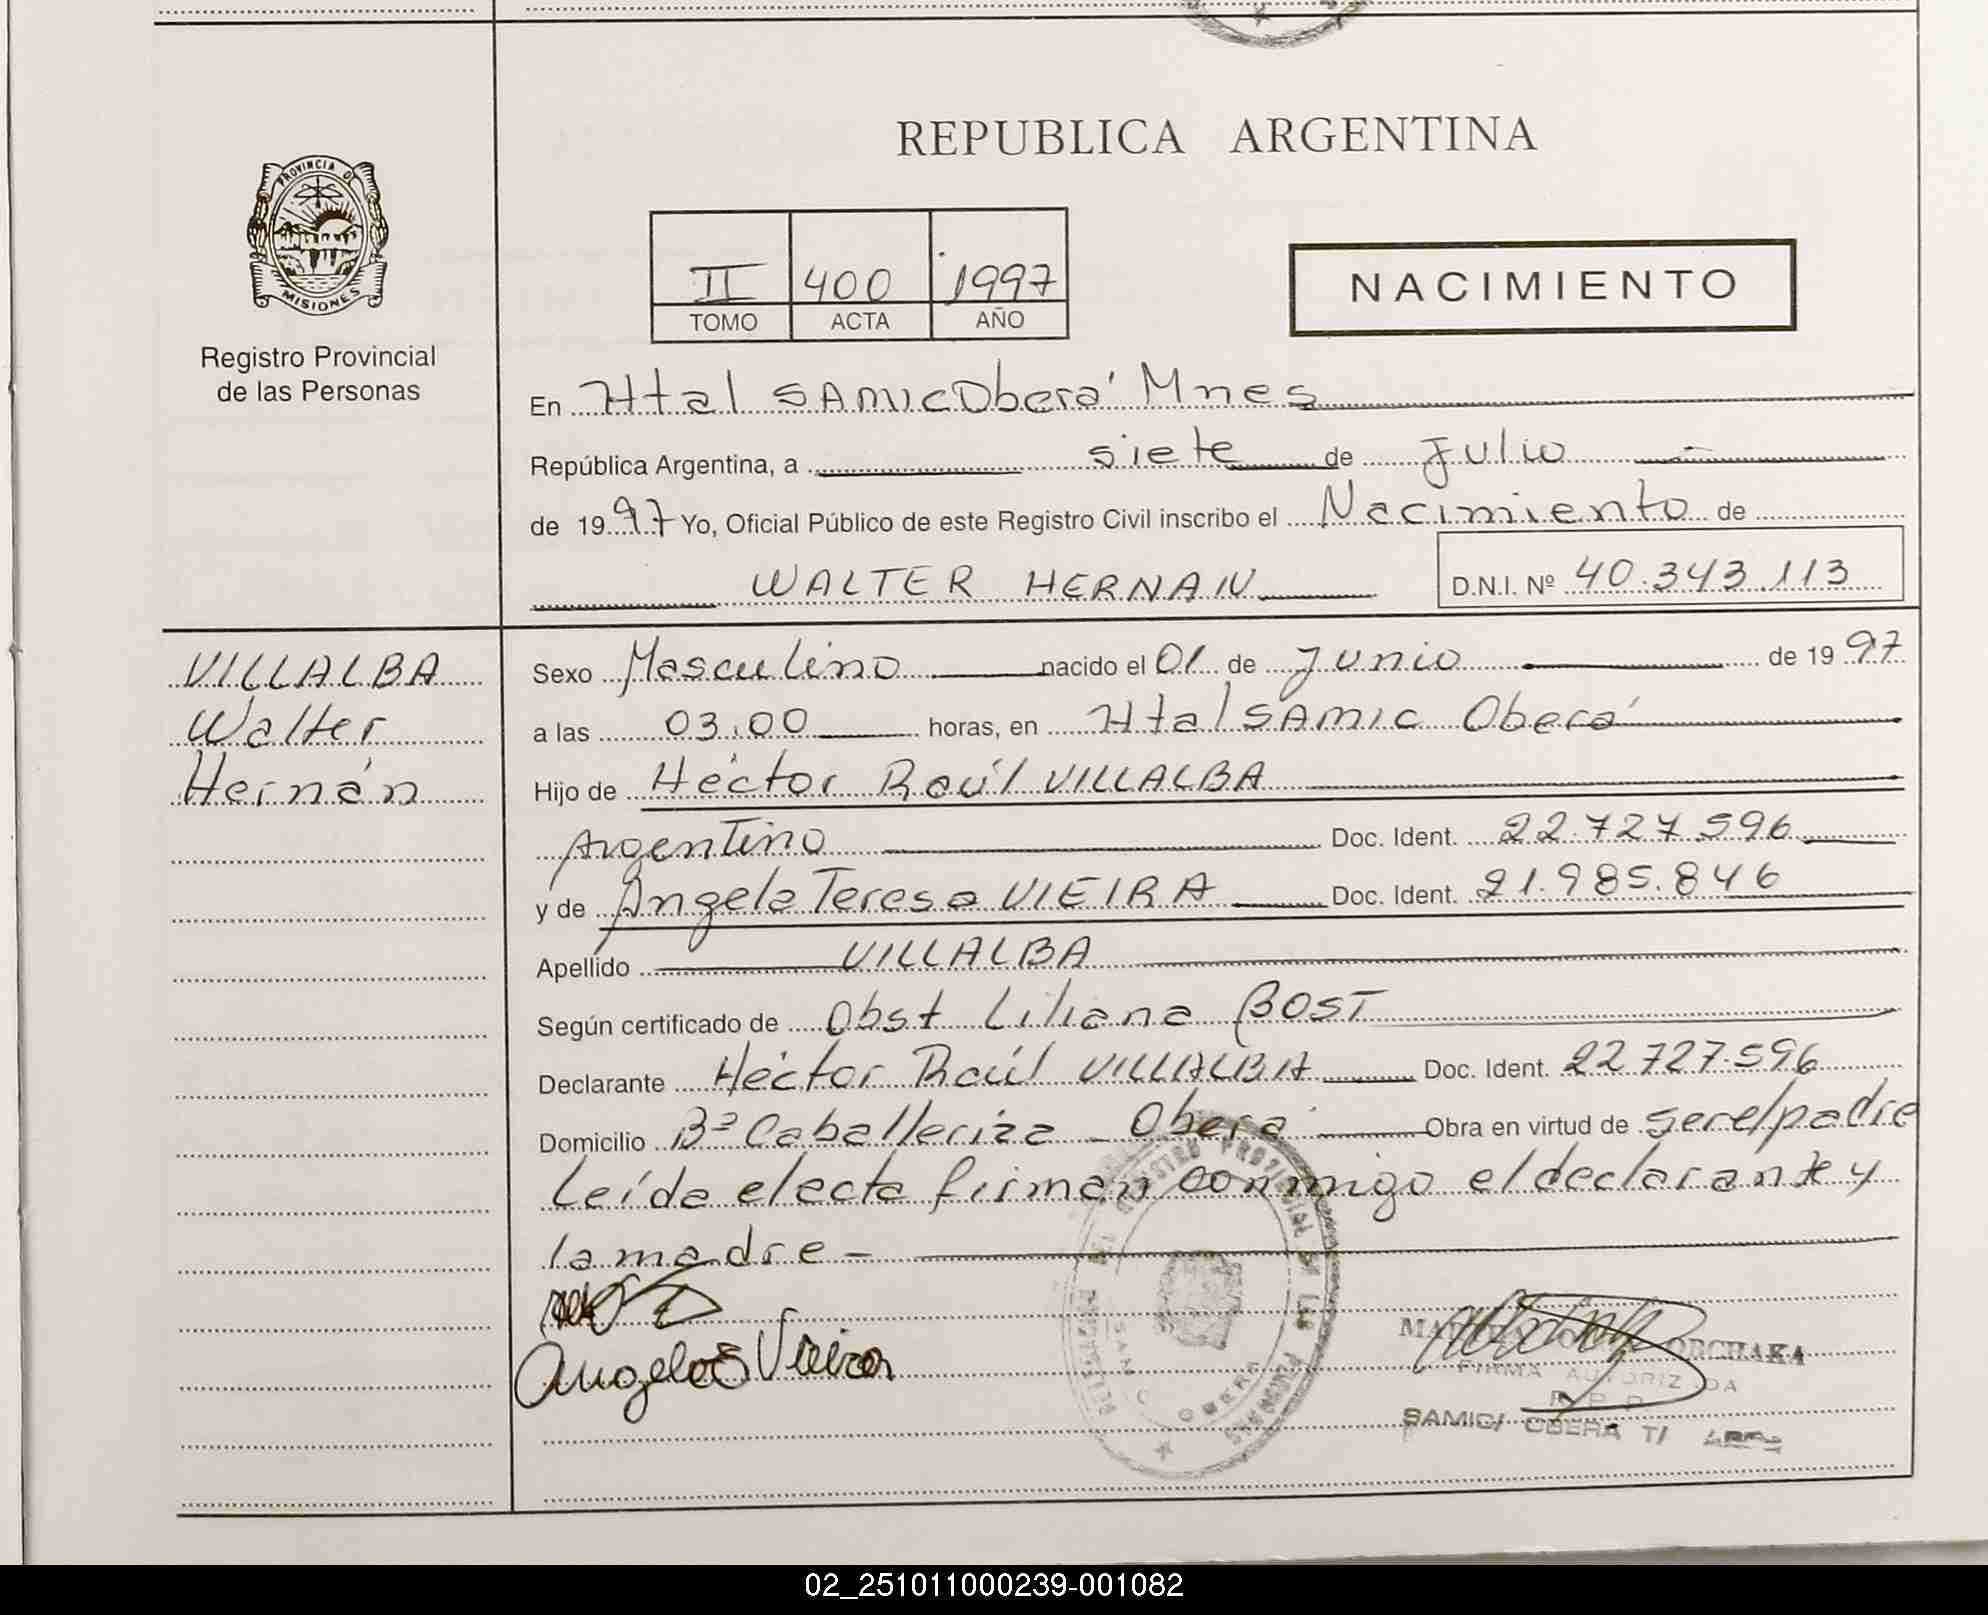 REPUBLICA ARGENTINA
PROVINCIA D
MISIONES
Registro Provincial
de las Personas
II 400 1997
TOMO ACTA AÑO
NACIMIENTO
En Htal SAMIC Oberá Mnes
República Argentina, a siete de Julio
de 1997 Yo, Oficial Público de este Registro Civil inscribo el Nacimiento de
WALTER HERNAN D.N.I. Nº 40.343.113
VILLALBA
Walter
Hernán
Sexo Masculino nacido el 01 de Junio de 1997
a las 03.00 horas, en Htal SAMIC Oberá
Hijo de Héctor Raúl VILLALBA
Argentino Doc. Ident. 22.727.596
y de Angela Teresa VIEIRA Doc. Ident. 21.985.846
Apellido VILLALBA
Según certificado de Obst Liliana BOST
Declarante Héctor Raúl VILLALBA Doc. Ident. 22.727.596
Domicilio Bº Caballeriza - Oberá Obra en virtud de ser el padre
Leída el acta firman conmigo el declarante y
la madre -
Angela Vieira
REGISTRO PROVINCIAL DE LAS PERSONAS
OBERA
ORCHAKA
FIRMA AUTORIZADA
R.P.P.
SAMIC/ OBERA T/
02_251011000239-001082